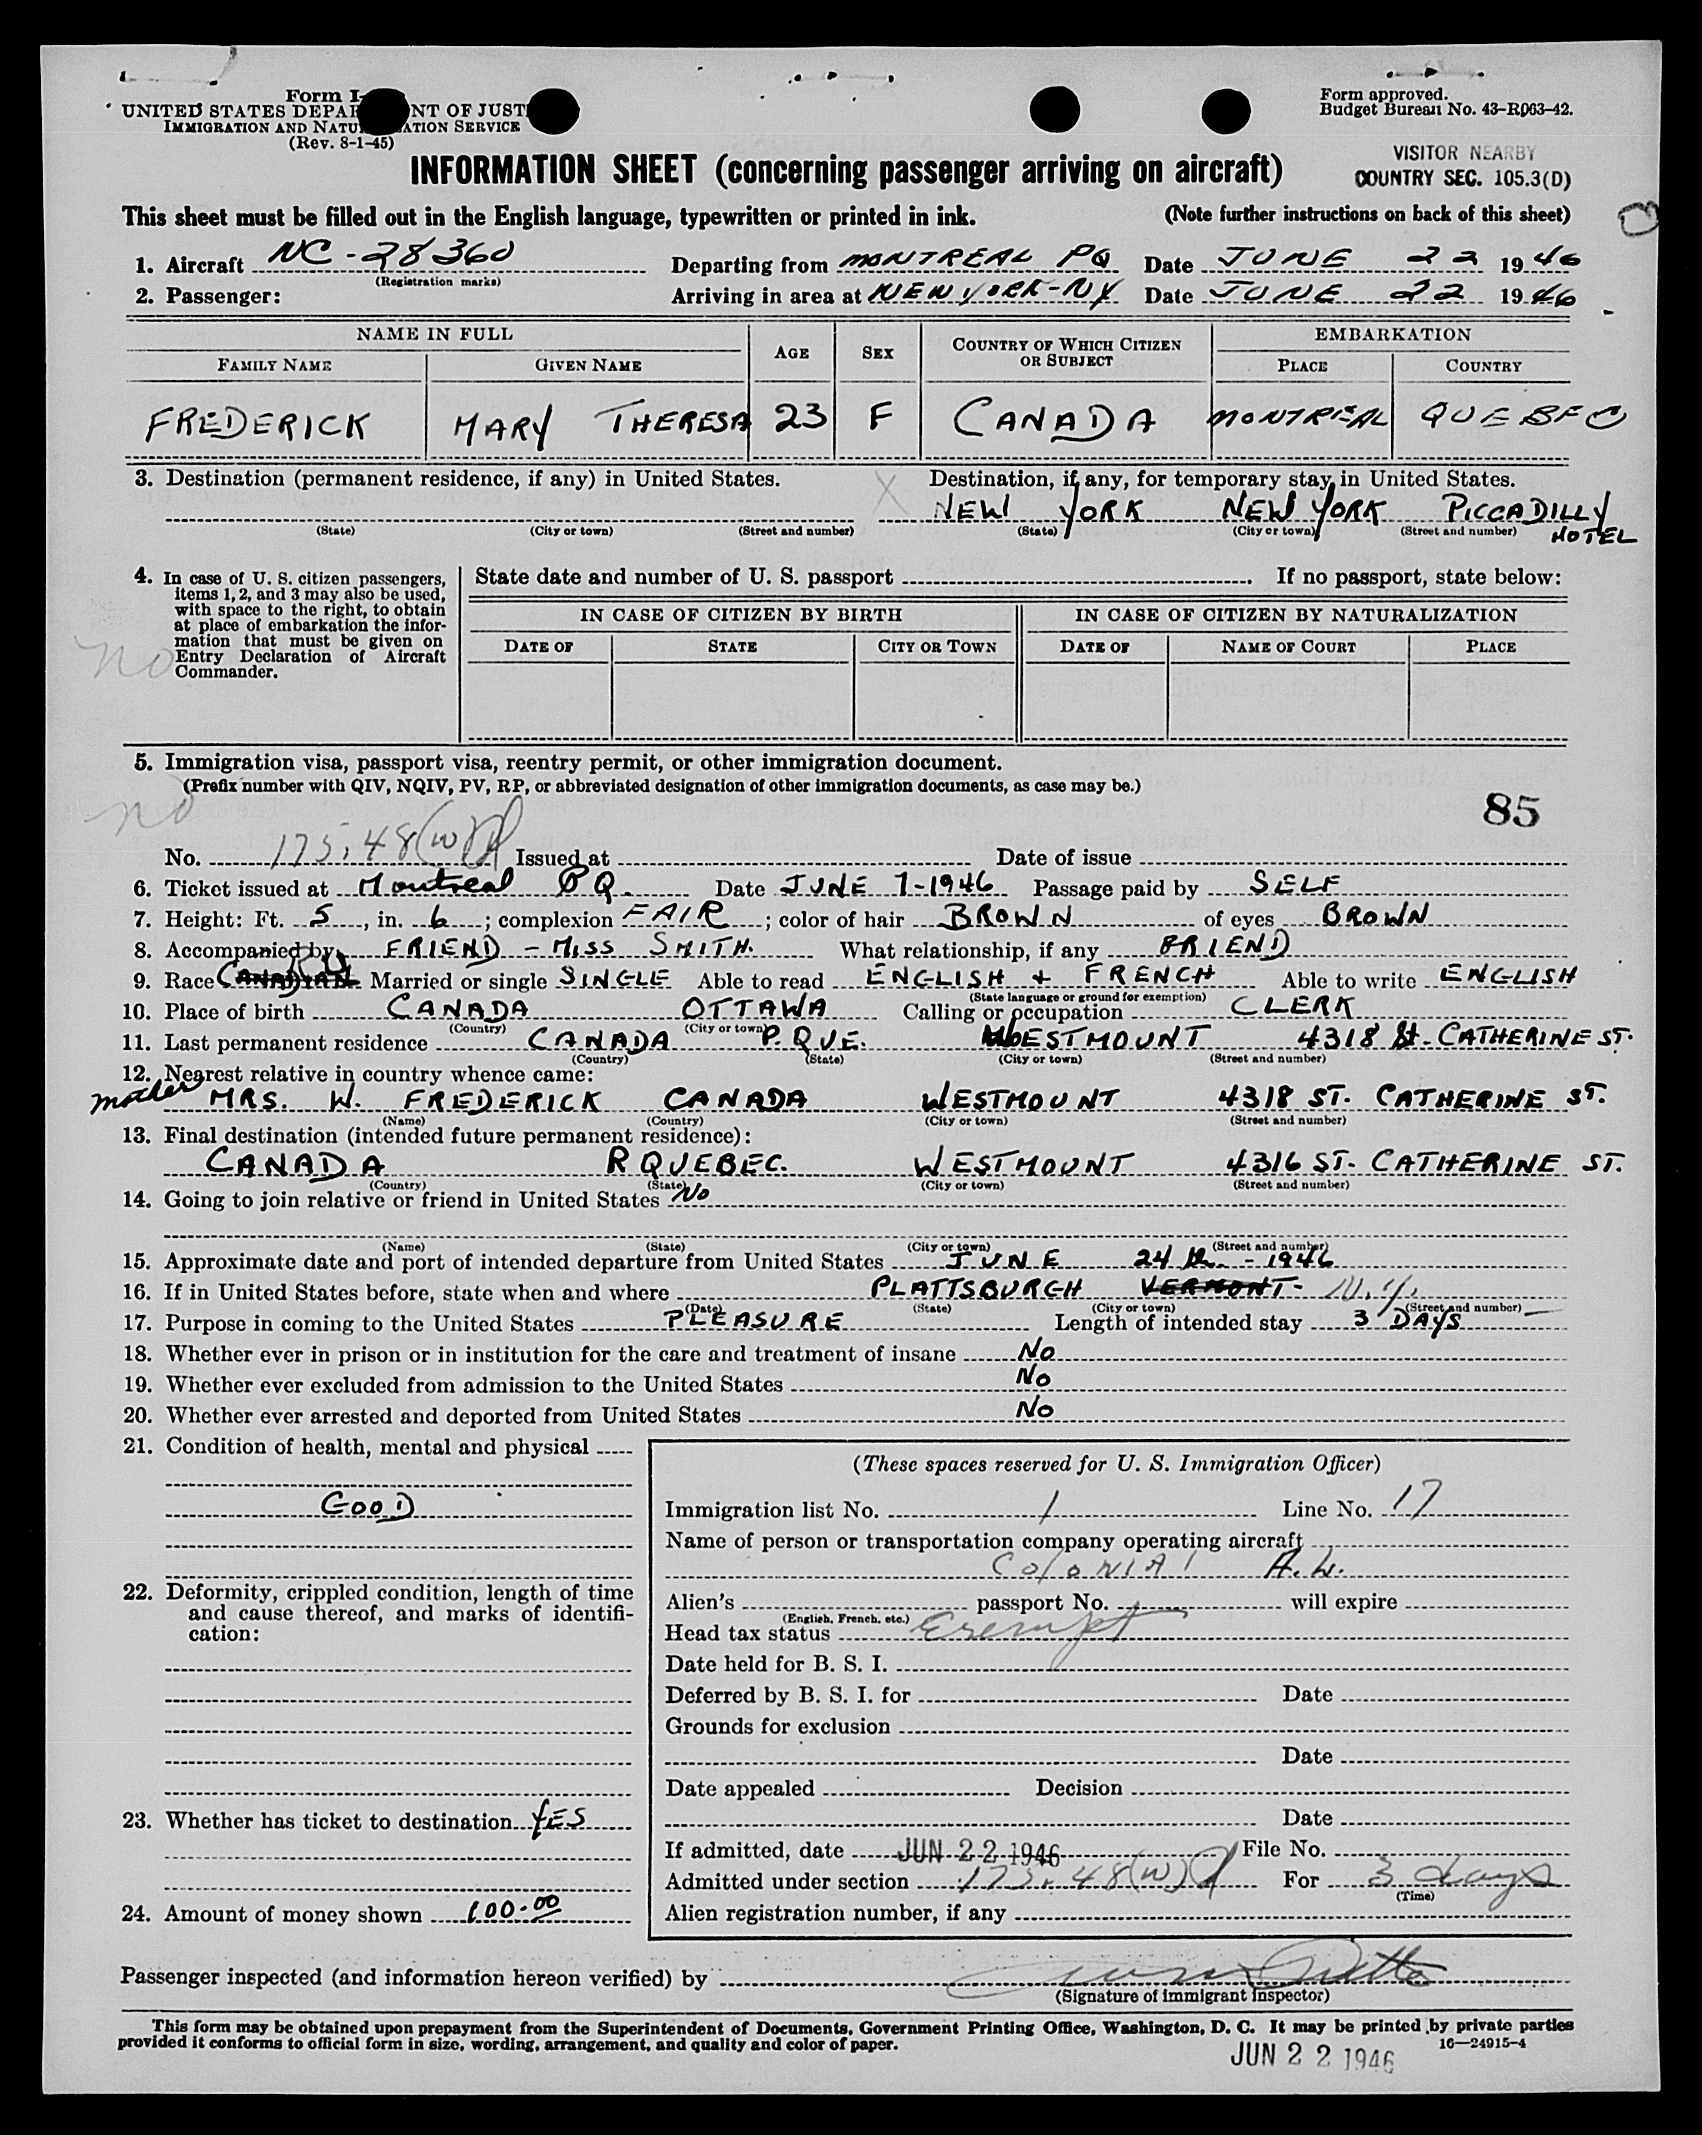 Form I-
UNITED STATES DEPARTMENT OF JUSTICE
IMMIGRATION AND NATURALIZATION SERVICE
(Rev. 8-1-45)
Form approved.
Budget Bureau No. 43-R063-42.
INFORMATION SHEET (concerning passenger arriving on aircraft)
VISITOR NEARBY
COUNTRY SEC. 105.3(D)
This sheet must be filled out in the English language, typewritten or printed in ink. (Note further instructions on back of this sheet)
1. Aircraft NC-28360 Departing from MONTREAL PQ Date JUNE 22 1946
(Registration marks)
2. Passenger: Arriving in area at NEW YORK-NY Date JUNE 22 1946
NAME IN FULL AGE SEX COUNTRY OF WHICH CITIZEN OR SUBJECT EMBARKATION
FAMILY NAME GIVEN NAME PLACE COUNTRY
FREDERICK MARY THERESA 23 F CANADA MONTREAL QUEBEC
3. Destination (permanent residence, if any) in United States. X Destination, if any, for temporary stay in United States.
NEW YORK NEW YORK PICCADILLY HOTEL
(State) (City or town) (Street and number) (State) (City or town) (Street and number)
4. In case of U. S. citizen passengers, items 1, 2, and 3 may also be used, with space to the right, to obtain at place of embarkation the information that must be given on Entry Declaration of Aircraft Commander.
no
State date and number of U. S. passport . If no passport, state below:
IN CASE OF CITIZEN BY BIRTH IN CASE OF CITIZEN BY NATURALIZATION
DATE OF STATE CITY OR TOWN DATE OF NAME OF COURT PLACE
5. Immigration visa, passport visa, reentry permit, or other immigration document.
(Prefix number with QIV, NQIV, PV, RP, or abbreviated designation of other immigration documents, as case may be.)
no
85
No. 175.48(W) Issued at Date of issue
6. Ticket issued at Montreal PQ. Date JUNE 7-1946 Passage paid by SELF
7. Height: Ft. 5, in. 6; complexion FAIR; color of hair BROWN of eyes BROWN
8. Accompanied by FRIEND - MISS SMITH. What relationship, if any FRIEND
9. Race CANADIAN Married or single SINGLE Able to read ENGLISH + FRENCH Able to write ENGLISH
(State language or ground for exemption)
10. Place of birth CANADA OTTAWA Calling or occupation CLERK
(Country) (City or town)
11. Last permanent residence CANADA P. QUE. WESTMOUNT 4318 St. CATHERINE ST.
(Country) (State) (City or town) (Street and number)
12. Nearest relative in country whence came:
mother MRS. W. FREDERICK CANADA WESTMOUNT 4318 ST. CATHERINE ST.
(Name) (Country) (City or town) (Street and number)
13. Final destination (intended future permanent residence):
CANADA P. QUEBEC. WESTMOUNT 4316 ST. CATHERINE ST.
(Country) (State) (City or town) (Street and number)
14. Going to join relative or friend in United States No
(Name) (State) (City or town) (Street and number)
15. Approximate date and port of intended departure from United States JUNE 24 th. - 1946
16. If in United States before, state when and where PLATTSBURGH VERMONT- N.Y.
(Date) (State) (City or town) (Street and number)
17. Purpose in coming to the United States PLEASURE Length of intended stay 3 DAYS
18. Whether ever in prison or in institution for the care and treatment of insane No
19. Whether ever excluded from admission to the United States No
20. Whether ever arrested and deported from United States No
21. Condition of health, mental and physical
GOOD
22. Deformity, crippled condition, length of time and cause thereof, and marks of identification:
23. Whether has ticket to destination YES
24. Amount of money shown 100.00
(These spaces reserved for U. S. Immigration Officer)
Immigration list No. 1 Line No. 17
Name of person or transportation company operating aircraft
COLONIAL A.L.
Alien's passport No. will expire
(English, French, etc.)
Head tax status Exempt
Date held for B. S. I.
Deferred by B. S. I. for Date
Grounds for exclusion
Date
Date appealed Decision
Date
If admitted, date JUN 22 1946 File No.
Admitted under section 175.48(W) For 3 days
(Time)
Alien registration number, if any
Passenger inspected (and information hereon verified) by
(Signature of Immigrant Inspector)
This form may be obtained upon prepayment from the Superintendent of Documents, Government Printing Office, Washington, D. C. It may be printed by private parties
provided it conforms to official form in size, wording, arrangement, and quality and color of paper. 16—24915-4
JUN 22 1946